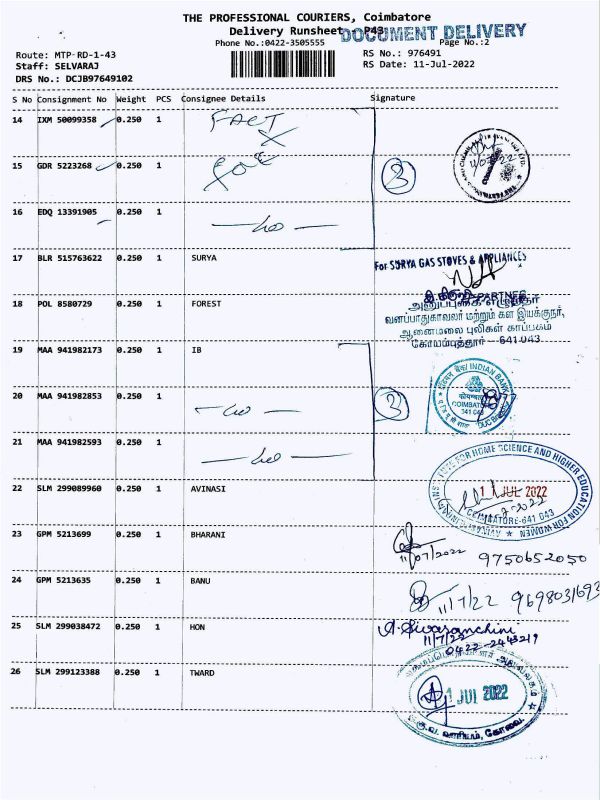 THE PROFESSIONAL COURIERS, Coimbatore
Delivery Runsheet P43
DOCUMENT DELIVERY
Phone No.:0422-3505555
Page No.:2
Route: MTP-RD-1-43
RS No.: 976491
Staff: SELVARAJ
RS Date: 11-Jul-2022
DRS No.: DCJB97649102
S No Consignment No Weight PCS Consignee Details Signature
14 IXM 50099358 0.250 1 FACT
15 GDR 5223268 0.250 1
3
16 EDQ 13391905 0.250 1
17 BLR 515763622 0.250 1 SURYA
For SURYA GAS STOVES & APPLIANCES
PARTNER
18 POL 8580729 0.250 1 FOREST
வனப்பாதுகாவலர் மற்றும் கள இயக்குநர்,
ஆனைமலை புலிகள் காப்பகம்
கோயம்புத்தூர் - 641 043.
19 MAA 941982173 0.250 1 IB
20 MAA 941982853 0.250 1
3
INDIAN BANK
COIMBATORE
641 043
21 MAA 941982593 0.250 1
22 SLM 299089960 0.250 1 AVINASI
INSTITUTE FOR HOME SCIENCE AND HIGHER EDUCATION FOR WOMEN
11 JUL 2022
COIMBATORE-641 043
23 GPM 5213699 0.250 1 BHARANI
11/07/2022 9750652050
24 GPM 5213635 0.250 1 BANU
11/7/22 9698031693
25 SLM 299038472 0.250 1 HON
A. Sivasanchini
11/7/22
0422-2443219
26 SLM 299123388 0.250 1 TWARD
1 JUL 2022
கு.வ. வாரியம், கோவை.